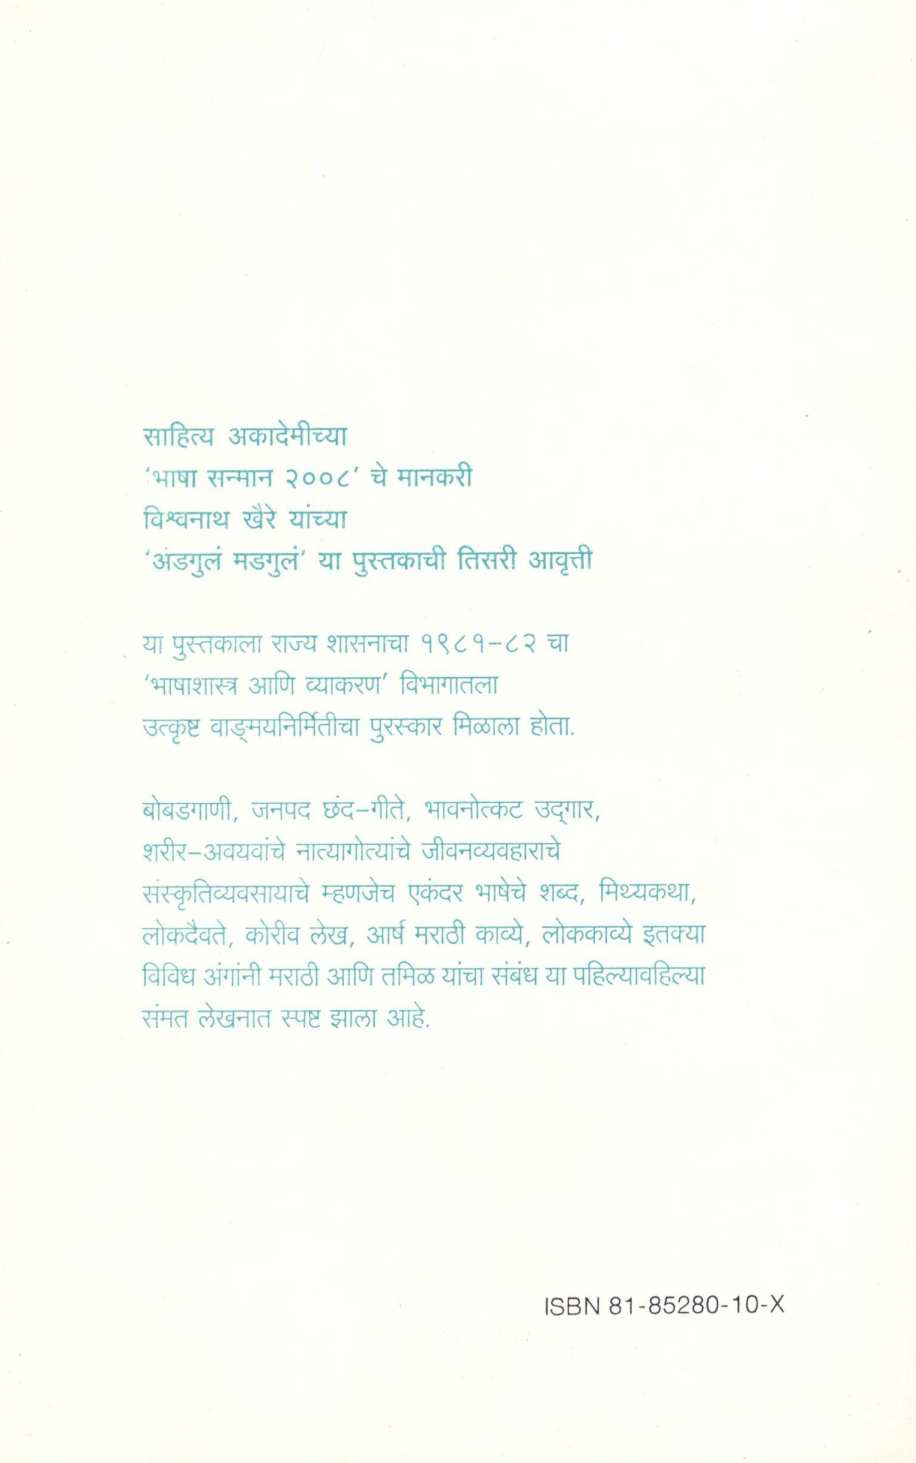 साहित्य अकादेमीच्या
‘भाषा सन्मान २००८’ चे मानकरी
विश्वनाथ खैरे यांच्या
‘अडगुलं मडगुलं’ या पुस्तकाची तिसरी आवृत्ती
या पुस्तकाला राज्य शासनाचा १९८१-८२ चा
‘भाषाशास्त्र आणि व्याकरण’ विभागातला
उत्कृष्ट वाङ्मयनिर्मितीचा पुरस्कार मिळाला होता.
बोबडगाणी, जनपद छंद-गीते, भावनोत्कट उद्‌गार,
शरीर-अवयवांचे नात्यागोत्यांचे जीवनव्यवहाराचे
संस्कृतिव्यवसायाचे म्हणजेच एकंदर भाषेचे शब्द, मिथ्यकथा,
लोकदैवते, कोरीव लेख, आर्ष मराठी काव्ये, लोककाव्ये इतक्या
विविध अंगांनी मराठी आणि तमिळ यांचा संबंध या पहिल्यावहिल्या
संमत लेखनात स्पष्ट झाला आहे.
ISBN 81-85280-10-X